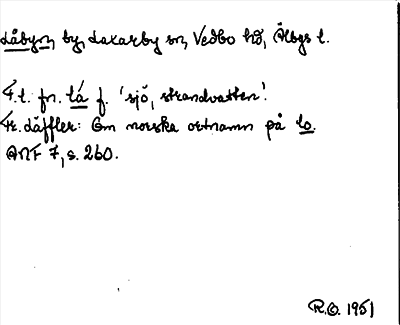 Låbyn, by, Laxarby sn, Vedbo hd, Älbgs l.
F.t. fn. lá f. 'sjö, strandvatten'.
Hr. Läffler: Om norska ortnamn på lo.
ANF 7, s. 260.
R.O. 1951